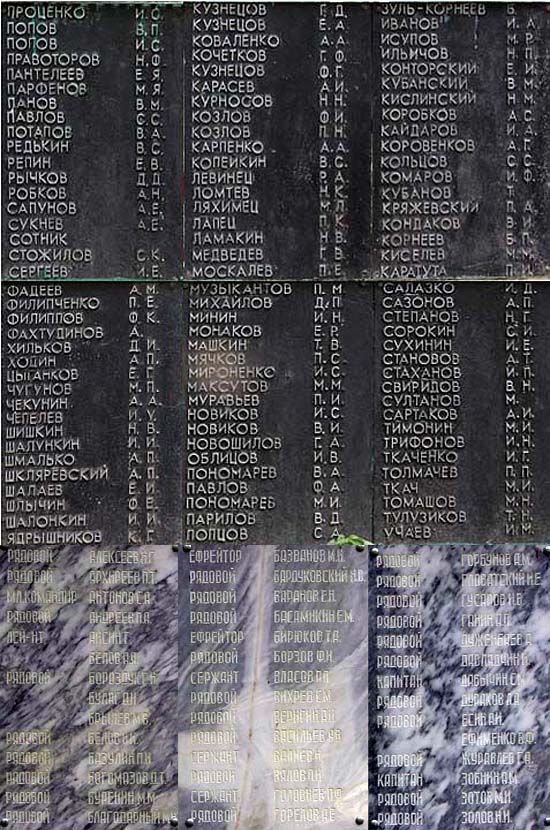 ПРОЦЕНКО И.С.
ПОПОВ В.П.
ПОПОВ И.С.
ПРАВОТОРОВ Н.Ф.
ПАНТЕЛЕЕВ Е.Я.
ПАРФЕНОВ М.Я.
ПАНОВ В.М.
ПАВЛОВ С.С.
ПОТАПОВ В.А.
РЕДЬКИН В.С.
РЕПИН Е.В.
РЫЧКОВ Д.Д.
РОБКОВ А.Н.
САПУНОВ А.Е.
СУКНЕВ А.Е.
СОТНИК
СТОЖИЛОВ С.К.
СЕРГЕЕВ И.Е.
КУЗНЕЦОВ Г.Д.
КУЗНЕЦОВ Е.А.
КОВАЛЕНКО А.А.
КОЧЕТКОВ Г.Ф.
КУЗНЕЦОВ Ф.Г.
КАРАСЕВ А.И.
КУРНОСОВ Н.Н.
КОЗЛОВ Ф.И.
КОЗЛОВ П.Н.
КАРПЕНКО А.А.
КОПЕЙКИН В.С.
ЛЕВИНЕЦ Р.А.
ЛОМТЕВ Н.К.
ЛЯХИМЕЦ Л.
ЛАПЕЦ П.К.
ЛАМАКИН Н.В.
МЕДВЕДЕВ Г.В.
МОСКАЛЕВ П.Е.
ЗУЛЬ-КОРНЕЕВ Б.
ИВАНОВ И.А.
ИСУПОВ М.Р.
ИЛЬИЧОВ Н.П.
КОНТОРСКИЙ Е.И.
КУБАНСКИЙ В.М.
КИСЛИНСКИЙ Н.М.
КОРОБКОВ А.С.
КАЙДАРОВ И.А.
КОРОВЕНКОВ А.Г.
КОЛЬЦОВ С.С.
КОМАРОВ И.Ф.
КУБАНОВ Т.
КРЯЖЕВСКИЙ П.А.
КОНДАКОВ В.И.
КОРНЕЕВ Б.П.
КИСЕЛЕВ М.М.
КАРАТУТА П.И.
ФАДЕЕВ А.М.
ФИЛИПЧЕНКО П.Е.
ФИЛИППОВ Ф.К.
ФАХТУДИНОВ А.
ХИЛЬКОВ Д.И.
ХОДИН А.П.
ЦЫГАНКОВ Е.Г.
ЧУГУНОВ М.П.
ЧЕКУНИН А.А.
ЧЕПЕЛЕВ И.У.
ШИШКИН Н.В.
ШАЛУНКИН И.И.
ШМАЛЬКО А.П.
ШКЛЯРЕВСКИЙ А.П.
ШАЛАЕВ Е.И.
ШЛЫЧИН Ф.Е.
ШАЛОНКИН И.И.
ЯДРЫШНИКОВ К.Г.
МУЗЫКАНТОВ П.М.
МИХАЙЛОВ Д.П.
МИНИН И.Н.
МОНАКОВ Е.Р.
МАШКИН Т.В.
МЯЧКОВ П.С.
МИРОНЕНКО И.С.
МАКСУТОВ М.М.
МУРАВЬЕВ П.И.
НОВИКОВ И.С.
НОВИКОВ В.И.
НОВОШИЛОВ Г.А.
ОБЛИЦОВ И.В.
ПОНОМАРЕВ В.А.
ПАВЛОВ Ф.А.
ПОНОМАРЕВ М.И.
ПАРИЛОВ В.Д.
ПОПЦОВ С.А.
САЛАЗКО И.Д.
САЗОНОВ А.П.
СТЕПАНОВ Н.Г.
СОРОКИН С.И.
СУХИНИН И.Е.
СТАНОВОВ А.Т.
СТАХАНОВ И.П.
СВИРИДОВ В.Н.
СУЛТАНОВ М.
САРТАКОВ А.И.
ТИМОНИН М.И.
ТРИФОНОВ И.Н.
ТКАЧЕНКО И.Г.
ТОЛМАЧЕВ П.П.
ТКАЧ М.И.
ТОМАШОВ М.Н.
ТУЛУЗИКОВ Т.Н.
УЧАЕВ И.М.
РЯДОВОЙ АЛЕКСЕЕВ Н.Г.
РЯДОВОЙ АРХИРЕЕВ П.Т.
МЛ.КОМАНДИР АНТОНОВ С.А.
РЯДОВОЙ АНДРЕЕВ П.А.
ЛЕЙ-НТ
БЕЛОВ
РЯДОВОЙ
БУЛАГ
РЯДОВОЙ БЕЛОВ
РЯДОВОЙ БАЗУЛИН П.Н.
РЯДОВОЙ БАГАМАЗОВ Д.Т.
РЯДОВОЙ БУРЕНИН М.М.
РЯДОВОЙ БЛАГОДАРНЫЙ
ЕФРЕЙТОР БАЗВАНОВ М.И.
РЯДОВОЙ БАРДУКОВСКИЙ Н.В.
РЯДОВОЙ БАРАНОВ Е.Н.
РЯДОВОЙ БАСАМЫКИН Е.М.
ЕФРЕЙТОР БИРЮКОВ Т.А.
РЯДОВОЙ БОРЗОВ Ф.Н.
СЕРЖАНТ ВЛАСОВ
РЯДОВОЙ ВИХРЕВ Е.М.
РЯДОВОЙ
РЯДОВОЙ ВАСИЛЬЕВ
СЕРЖАНТ
РЯДОВОЙ
СЕРЖАНТ
РЯДОВОЙ ГОРЕЛОВ
РЯДОВОЙ ГОРБУНОВ А.М.
РЯДОВОЙ
РЯДОВОЙ ГУСАРОВ Н.В.
РЯДОВОЙ
РЯДОВОЙ
РЯДОВОЙ
КАПИТАН
РЯДОВОЙ ДУРАКОВ
ЕФИМЕНКО В.Ф.
РЯДОВОЙ ЖУРАВЛЕВ
КАПИТАН ЗОБНИН
РЯДОВОЙ ЗОТОВ М.И.
РЯДОВОЙ ЗОЛОВ Н.И.